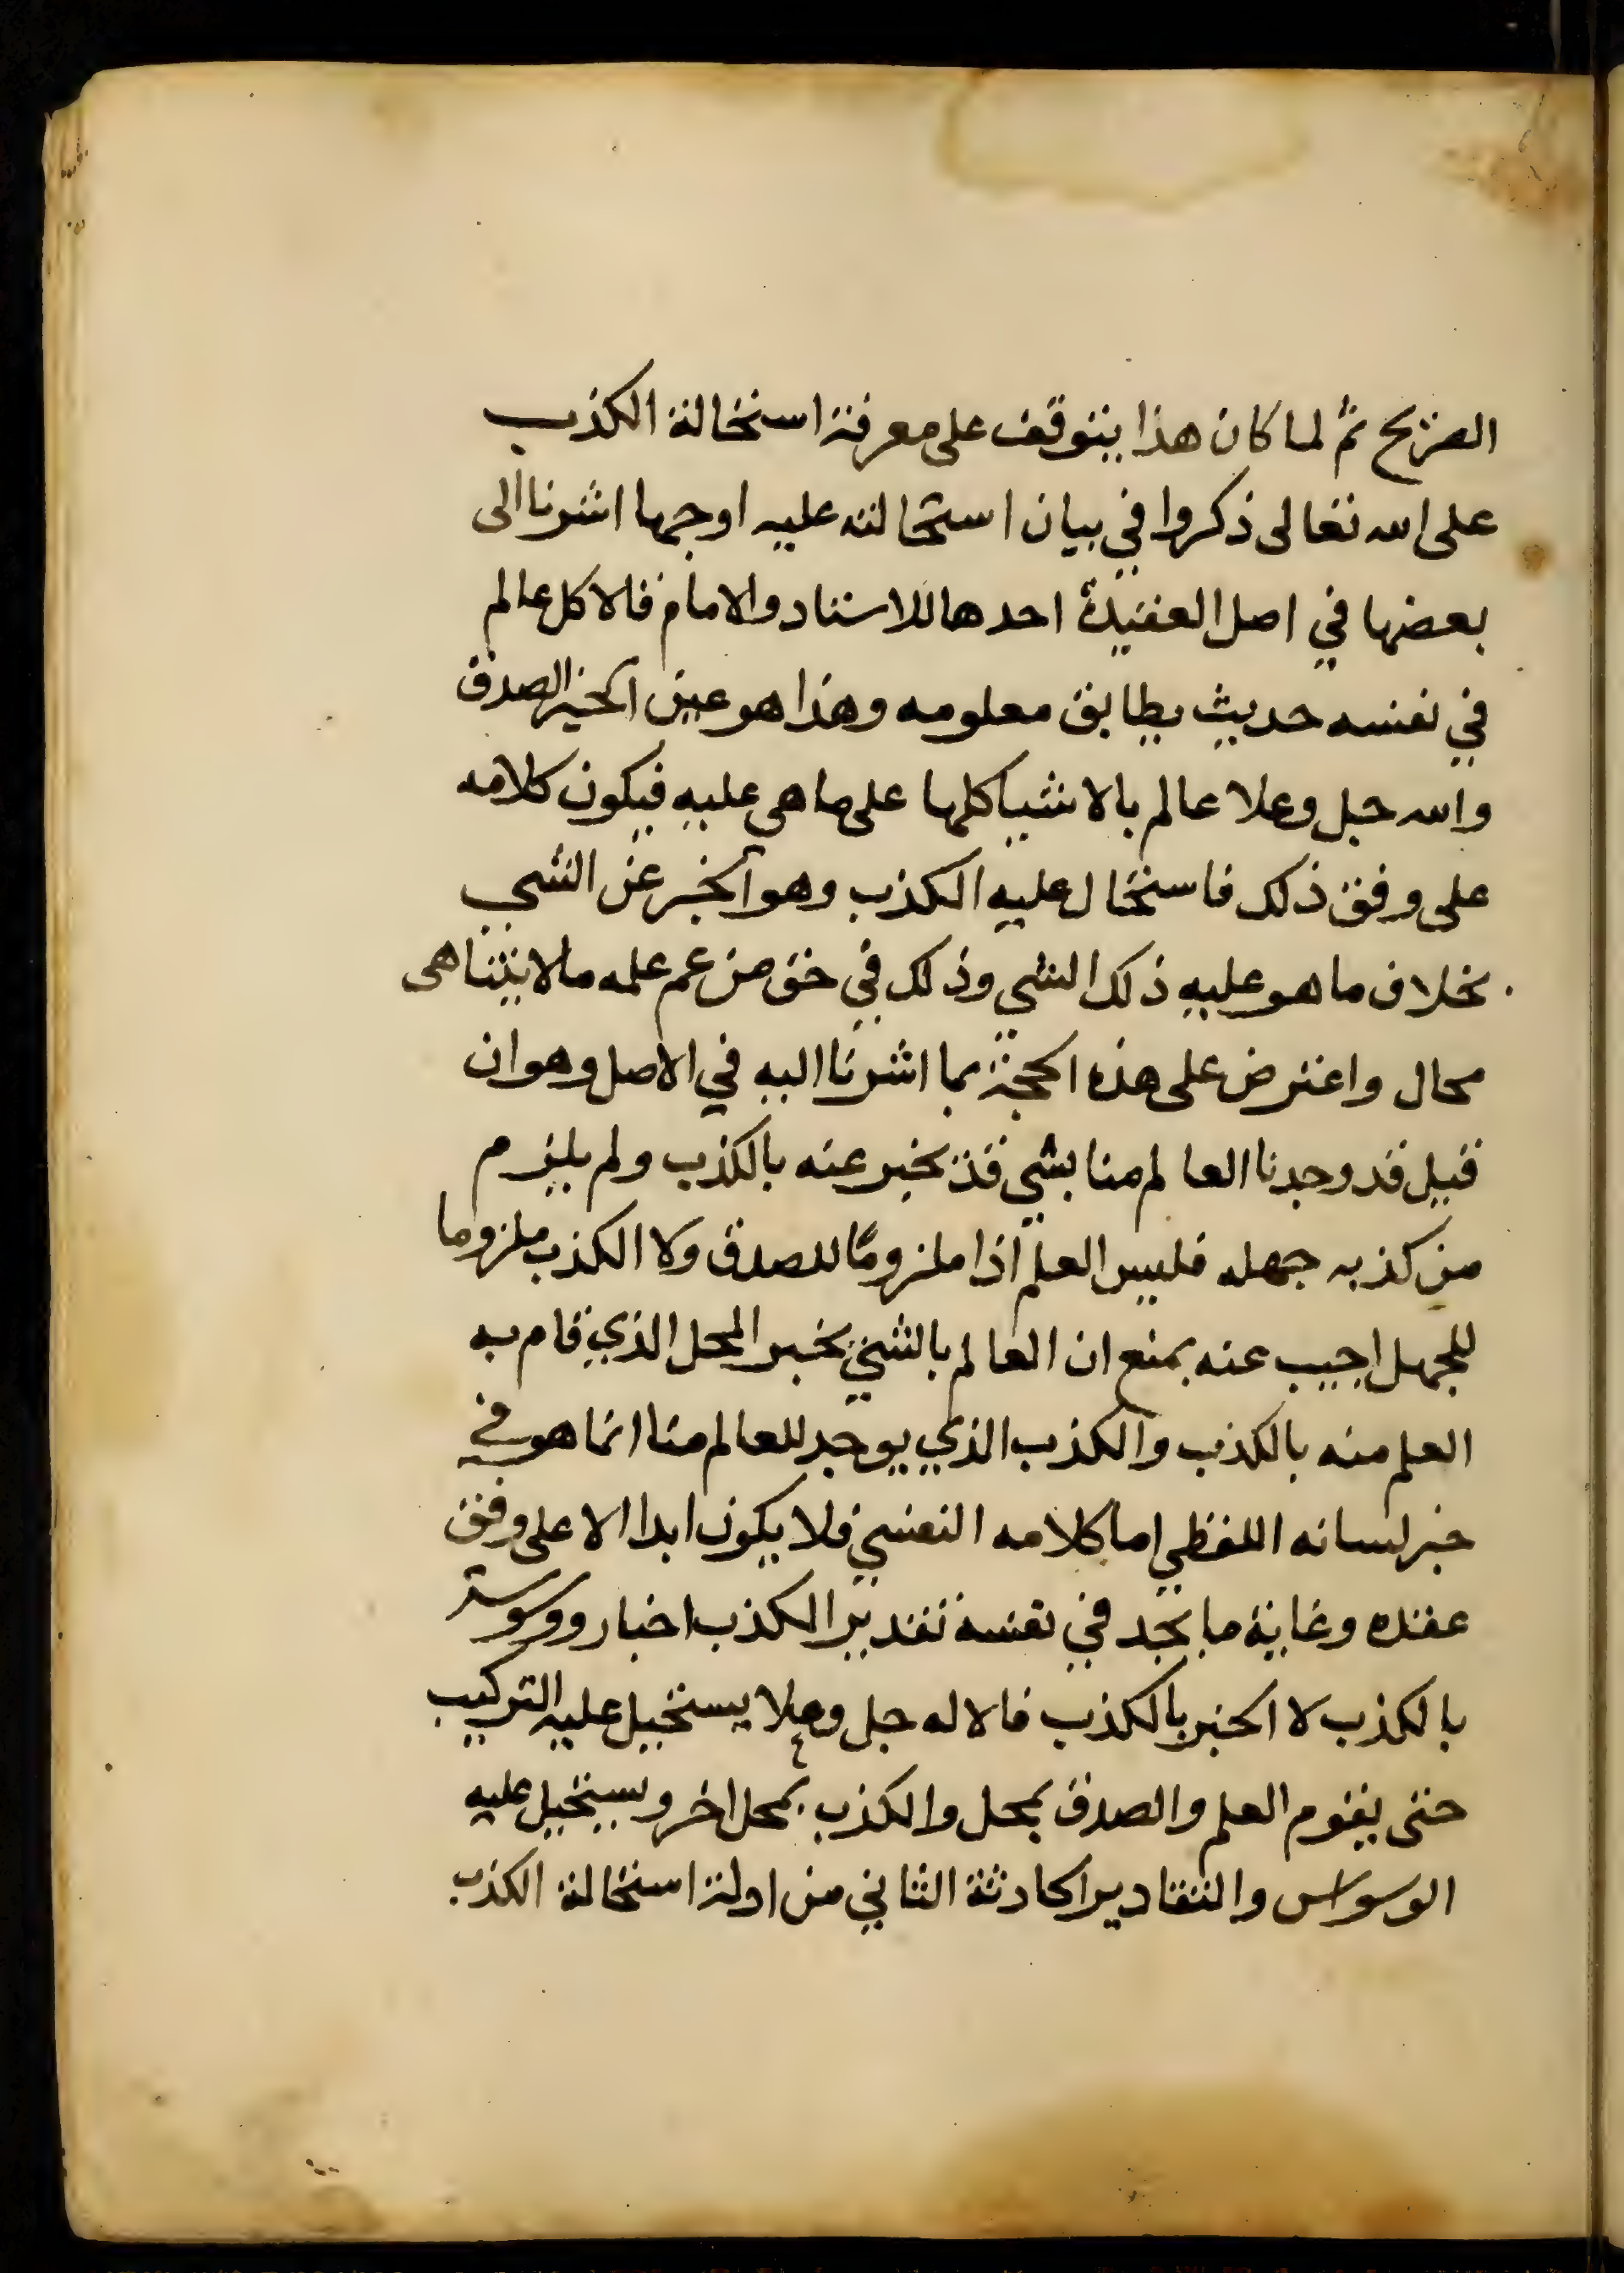 الصريح ثم لما كان هذا يتوقف على معرفة استحالة الكذب
على الله تعالى ذكروا في بيان استحالته عليه اوجها اشرنا الى
بعضها في اصل العقيدة احدها للاستاد والامام قالا كل عالم
في نفسه حديث يطابق معلومه وهذا هو عين الخبر الصدق
والله جل وعلا عالم بالاشيا كلها على ما هي عليه فيكون كلامه
على وفق ذلك فاستحال عليه الكذب وهو الخبر عن الشي
بخلاف ما هو عليه ذلك الشي وذلك في حق من عم علمه ما لا يتناهى
محال واعترض على هذه الحجة بما اشرنا اليه في الاصل وهو ان
قيل قد وجدنا العالم منا بشي قد يخبر عنه بالكذب ولم يلزم
من كذبه جهله فليس العلم اذا ملزومًا للصدق ولا الكذب ملزوما
للجهل اجيب عنه بمنع ان العالم بالشي يخبر المحل الذي قام به
العلم منه بالكذب والكذب الذي يوجد للعالم منا انما هو في
خبر لسانه اللفظي اما كلامه النفسي فلا يكون ابدا الا على وفق
عقده وغاية ما يجد في نفسه تقدير الكذب اخبار ووسوسة
بالكذب لا الخبر بالكذب فالاله جل وعلا يستحيل عليه التركيب
حتى يقوم العلم والصدق بمحل والكذب بمحل اخر ويستحيل عليه
الوسواس والتقادير الحادثة الثاني من ادلة استحالة الكذب